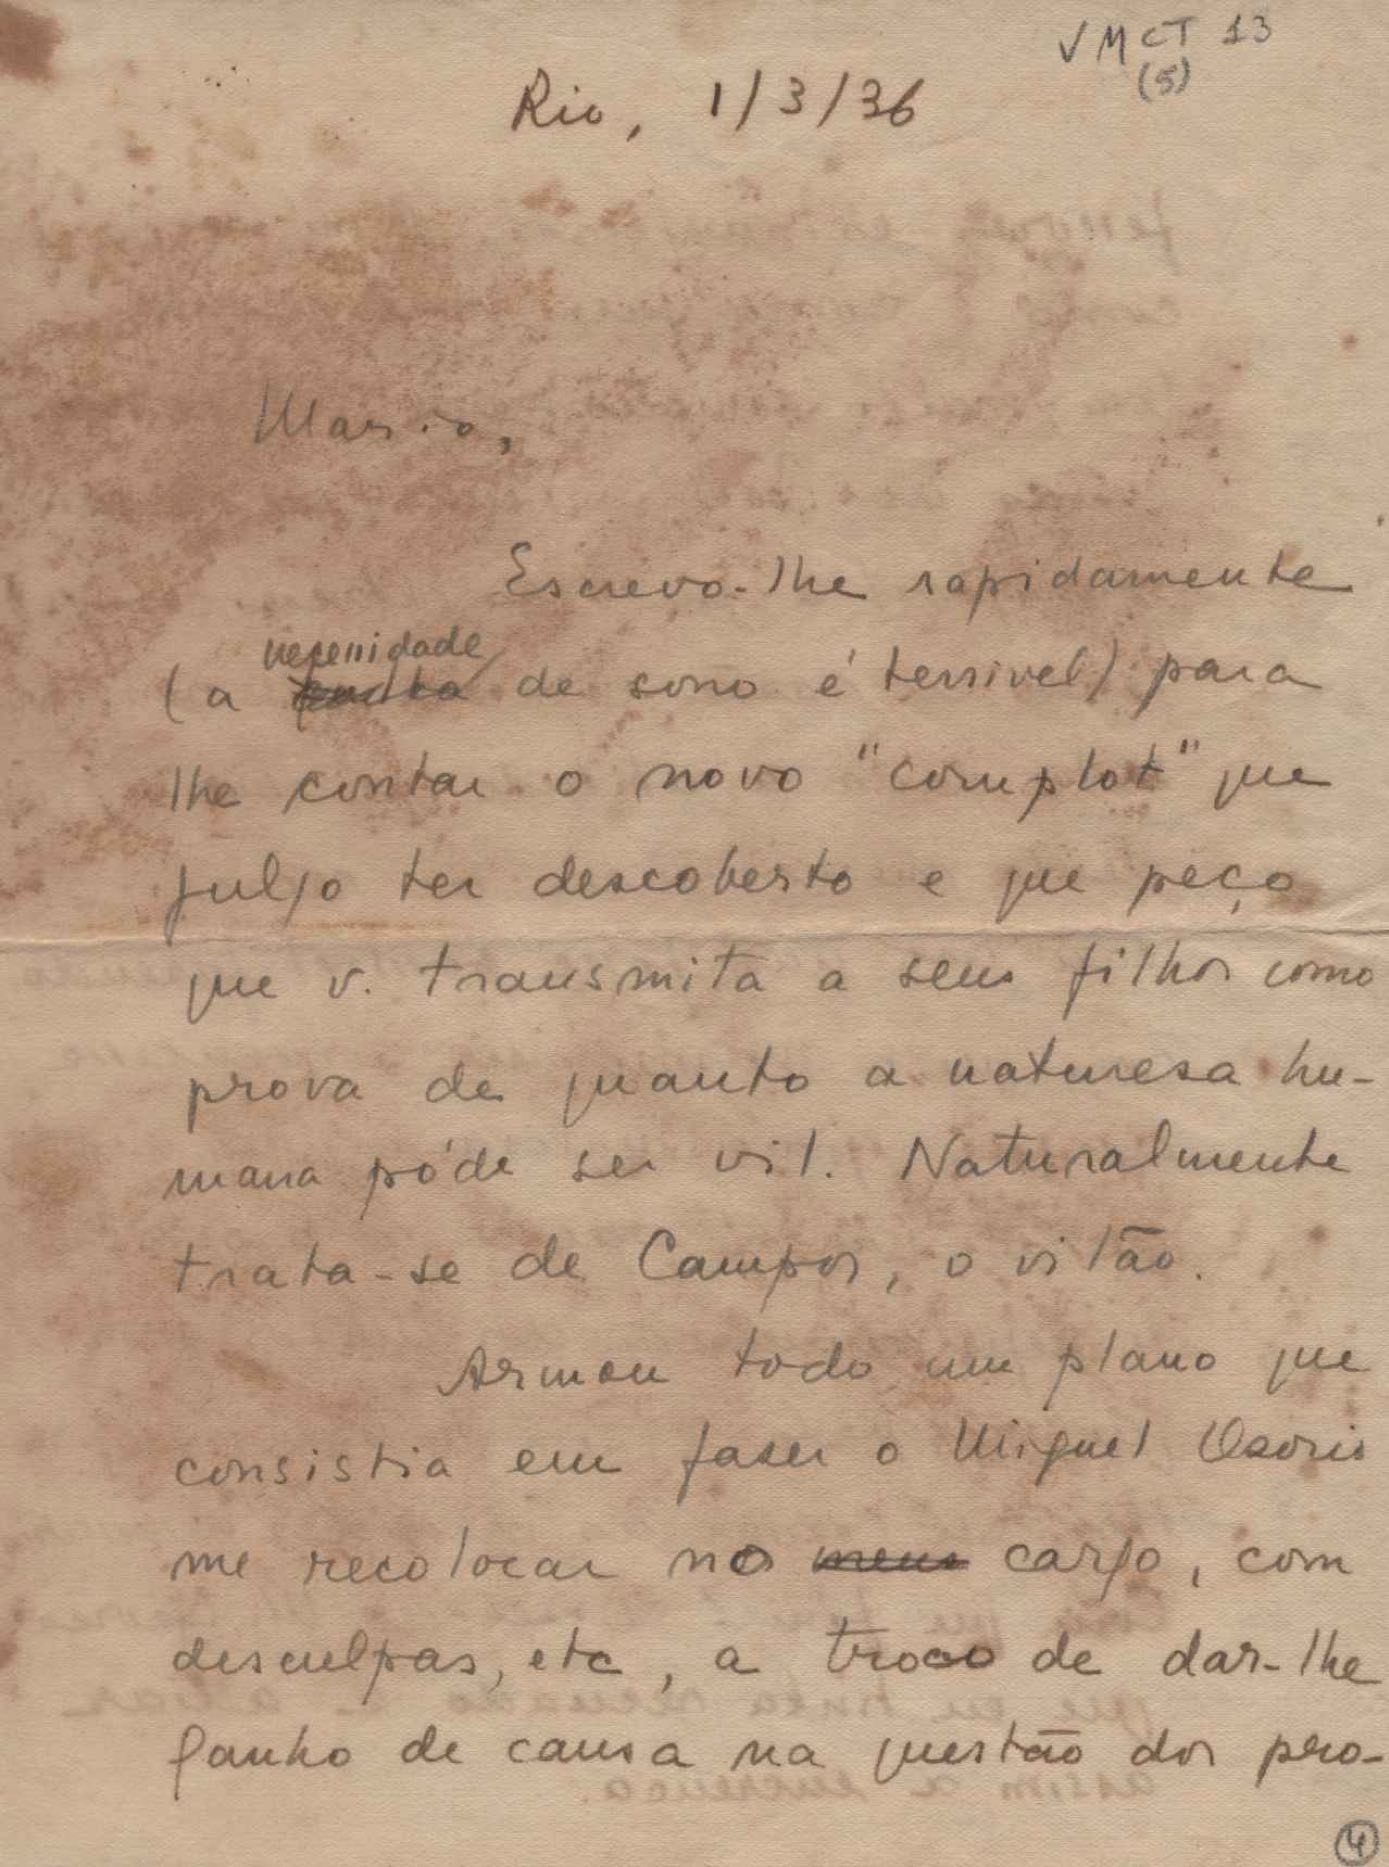 VM CT 13
(5)
Rio, 1/3/36
Mario,
Escrevo-lhe rapidamente
necessidade
(a de sono é terrivel) para
lhe contar o novo "complot" que
julgo ter descoberto e que peço
que v. transmita a seus filhos como
prova de quanto a naturesa hu-
mana póde ser vil. Naturalmente
trata-se de Campos, o vilão.
Armou todo um plano que
consistia em faser o Miguel Osorio
me recolocar no meu cargo, com
desculpas, etc, a troco de dar-lhe
ganho de causa na questão dos pro-
4